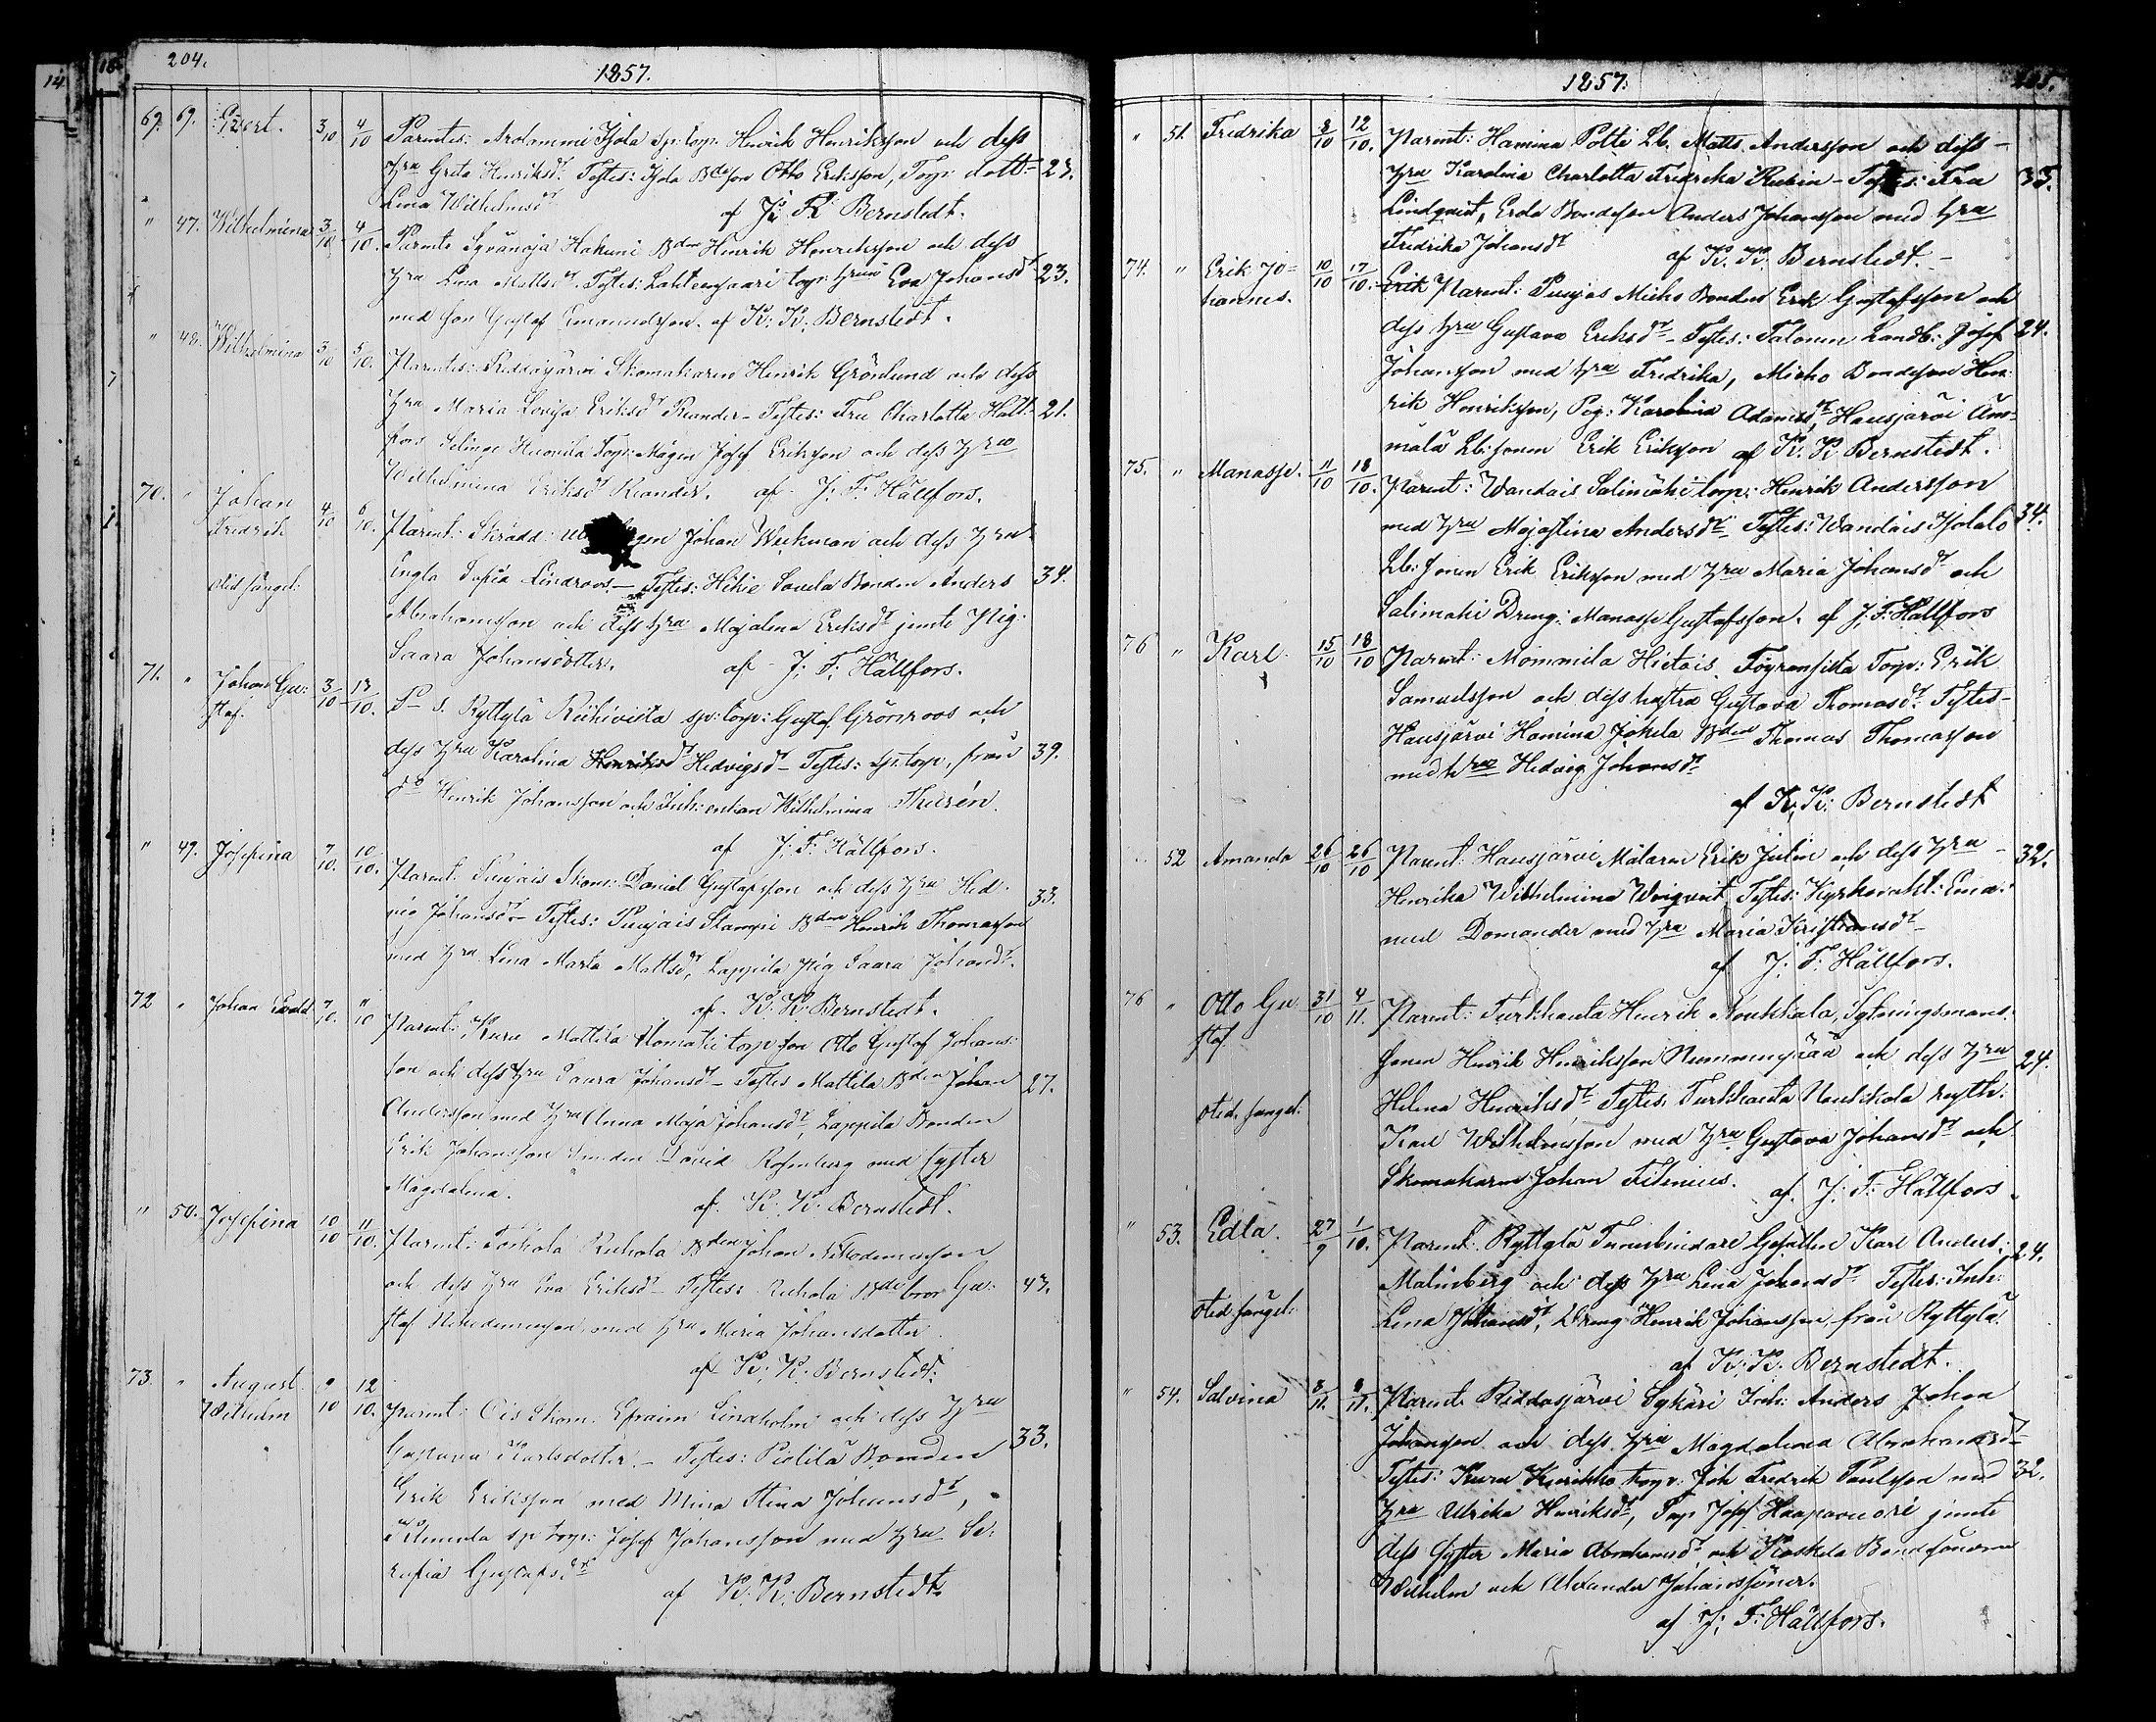 204.
1857.
69. 69. Evert. 3/10 4/10 Parentes: Arolammi Kjola sp: torp: Henrik Henriksson och dess
Hru Greta Henriksdr Testes: Kjola Bdeson Otto Eriksson, Torp: dott- 23.
Lina Wilhelmsdr af K: K: Bernstedt.
" 47. Wilhelmina 3/10 4/10. Parents Syvänoja Hakuni Bdn Henrik Henriksson och dess
hru Lina Mattsdr. Testes: Lahtensaari torp: hrun Eva Johansdr 23.
med son Gustaf Emanuelsson. af K: K: Bernstedt.
" 48. Wilhelmina 3/10 5/10. Parentes: Riddasjärvi Skomakaren Henrik Grönlund och dess
Hru Maria Lovisa Eriksdr Reander - Testes: Fru Charlotta Häll- 21.
fors Selinge Huomila Torp: Mågen Josef Eriksson och dess hru
Wilhelmina Eriksdr Reander. af J: F: Hällfors.
70. " Johan 4/10 6/10. Parent: Skrädd: Johan Weckman och dess hru
Fredrik
Engla Sofia Lindroos. - Testes: Hikie Soucla Bonden Anders 34.
oäd. fängel:
Abrahamsson och dess hru Majalena Eriksdr jemte Pig:
Saara Johansdotter. af J: F: Hällfors.
71. " Johan Gu: 3/10 13/10. P- s. Ryttylä Riihivista sp: torp: Gustaf Grönroos och
staf.
dess hru Karolina Henriksd Hedvigsdr - Testes: sp: torp, från 39.
do Henrik Johansson och Inh: enkan Wilhelmina Thurén.
af J: F: Hällfors.
" 49. Josefina 7/10. 10/10. Parent: Punjais Skom: Daniel Gustafsson och dess hru Hed- 33.
vig Johansdr - Testes: Punjais Stampi Bdn Henrik Thomasson
med hru Lina Marta Mattsdr, Lappila pig Saara Johansdr.
af K: K: Bernstedt.
72 " Johan Evald 7/10. 11/10 Parent: Kuru Mattila Homäki torp son Otto Gustaf Johans-
son och dess hru Saara Johansdr - Testes Mattila Bden Johan 27.
Andersson med Hru Anna Maja Johansdr, Lappila Bonden
Erik Johansson Smeden David Rosenberg med syster
Magdalena. af K: K: Bernstedt.
" 50. Josefina 10/10 11/10. Parent: Torhola Ruhola Bden Johan Nikodemusson
och dess hru Eva Eriksdr - Testes: Ruhola Bde bror Gu- 43.
staf Nikodemusson med hru Maria Johansdotter.
af K: K: Bernstedt.
73. " August 9/10 12/10. Parent: Ois Skom: Efraim Lindholm och dess hru
Wilhelm
Gustava Karlsdotter. - Testes: Piolilä Bonden 33.
Erik Eriksson med Mina Stina Johansdr,
sp torp: Josef Johansson med hru Se-
rafia Gustafsdr
af K: K: Bernstedt.
205.
1857.
" 51. Fredrika 8/10 12/10. Parent: Hamina Potti Lb. Matts Andersson och dess -
hru Karolina Charlotta Fredrika Rubin - Testes: Fru 35.
Lindqvist, Erola Bondeson Anders Johansson med hru
Fredrika Johansdr
af K: K: Bernstedt. -
74. " Erik Jo= 10/10 17/10. Erik Parent: Punjas Micko Bonden Erik Gustafsson och
hannes.
dess hru Gustava Eriksdr - Testes: Talonen Landb: Josef 24.
Johansson med hru Fredrika, Micko Bondeson Hen-
rik Henriksson, Pig: Karolina Adamsdr, Hausjärvi Äm-
mälä Lb: sonen Erik Eriksson af K: K Bernstedt.
75. " Manasse. 11/10 18/10. Parent: Wandais Salimäki torp: Henrik Andersson
med hru Majastina Andersdr. Testes: Wandais Kjolalo 34.
Lb: sonen Erik Eriksson med Hru Maria Johansdr och
Salimaki Dreng: Manasse Gustafsson. af J: F: Hällfors
76 " Karl. 15/10 18/10 Parent: Mommila Hietois. Töyrensista Torp: Erik
Samuelsson och dess hustru Gustava Thomasdr. Testes-
Hausjärvi Hamina Jokela Bden Thomas Thomasson
med hru Hedvig Johansdr
af K: K: Bernstedt
52 Amanda 26/10 26/10 Parent: Hausjärvi Målaren Erik Julin och dess hru - 32.
Henrika Wilhelmina Winqvist, Testes: Kyrkovakt: Ema-
nuel Domander med hru Maria Kristiansdr -
af J: F: Hällfors.
76 " Otto Gu 31/10 4/11. Parent: Turkhauta Henrik Noukkala, Sytningsmans
staf
sonen Henrik Henriksson Nummenpää och dess hru 24.
Helena Henriksdr. Testes. Turkhauta Noukkola rusth:
oäd. fängel:
Karl Wilhelmsson med Hru Gustava Johansdr och
Skomakaren Johan Filenius. af J: F: Hällfors.
" 53. Edla. 27/9 1/10. Parent: Ryttylä Tunnbindare Gesällen Karl Anders: 24.
Malmberg och dess hru Lena Johansdr. Testes: Inh:
oäd. fängel:
Lena Johansdr, Dreng Henrik Johansson, från Ryttylä
af K: K: Bernstedt.
" 54. Salvina 8/11. 8/11. Parent. Riddasjärvi Sykäri Inh: Anders Johan
Johansson och dess hru Magdalena Abrahamsdr -
Testes: Kuru Kurikko torp. Joh Fredrik Paulsson med 32.
hru Ulrika Henriksdr, Torp Josef Haapavuori jemte
dess syster Maria Abrahamsdr och Koskela Bondsönerne
Wilhelm och Alexander Johanssöner.
af J: F: Hällfors.